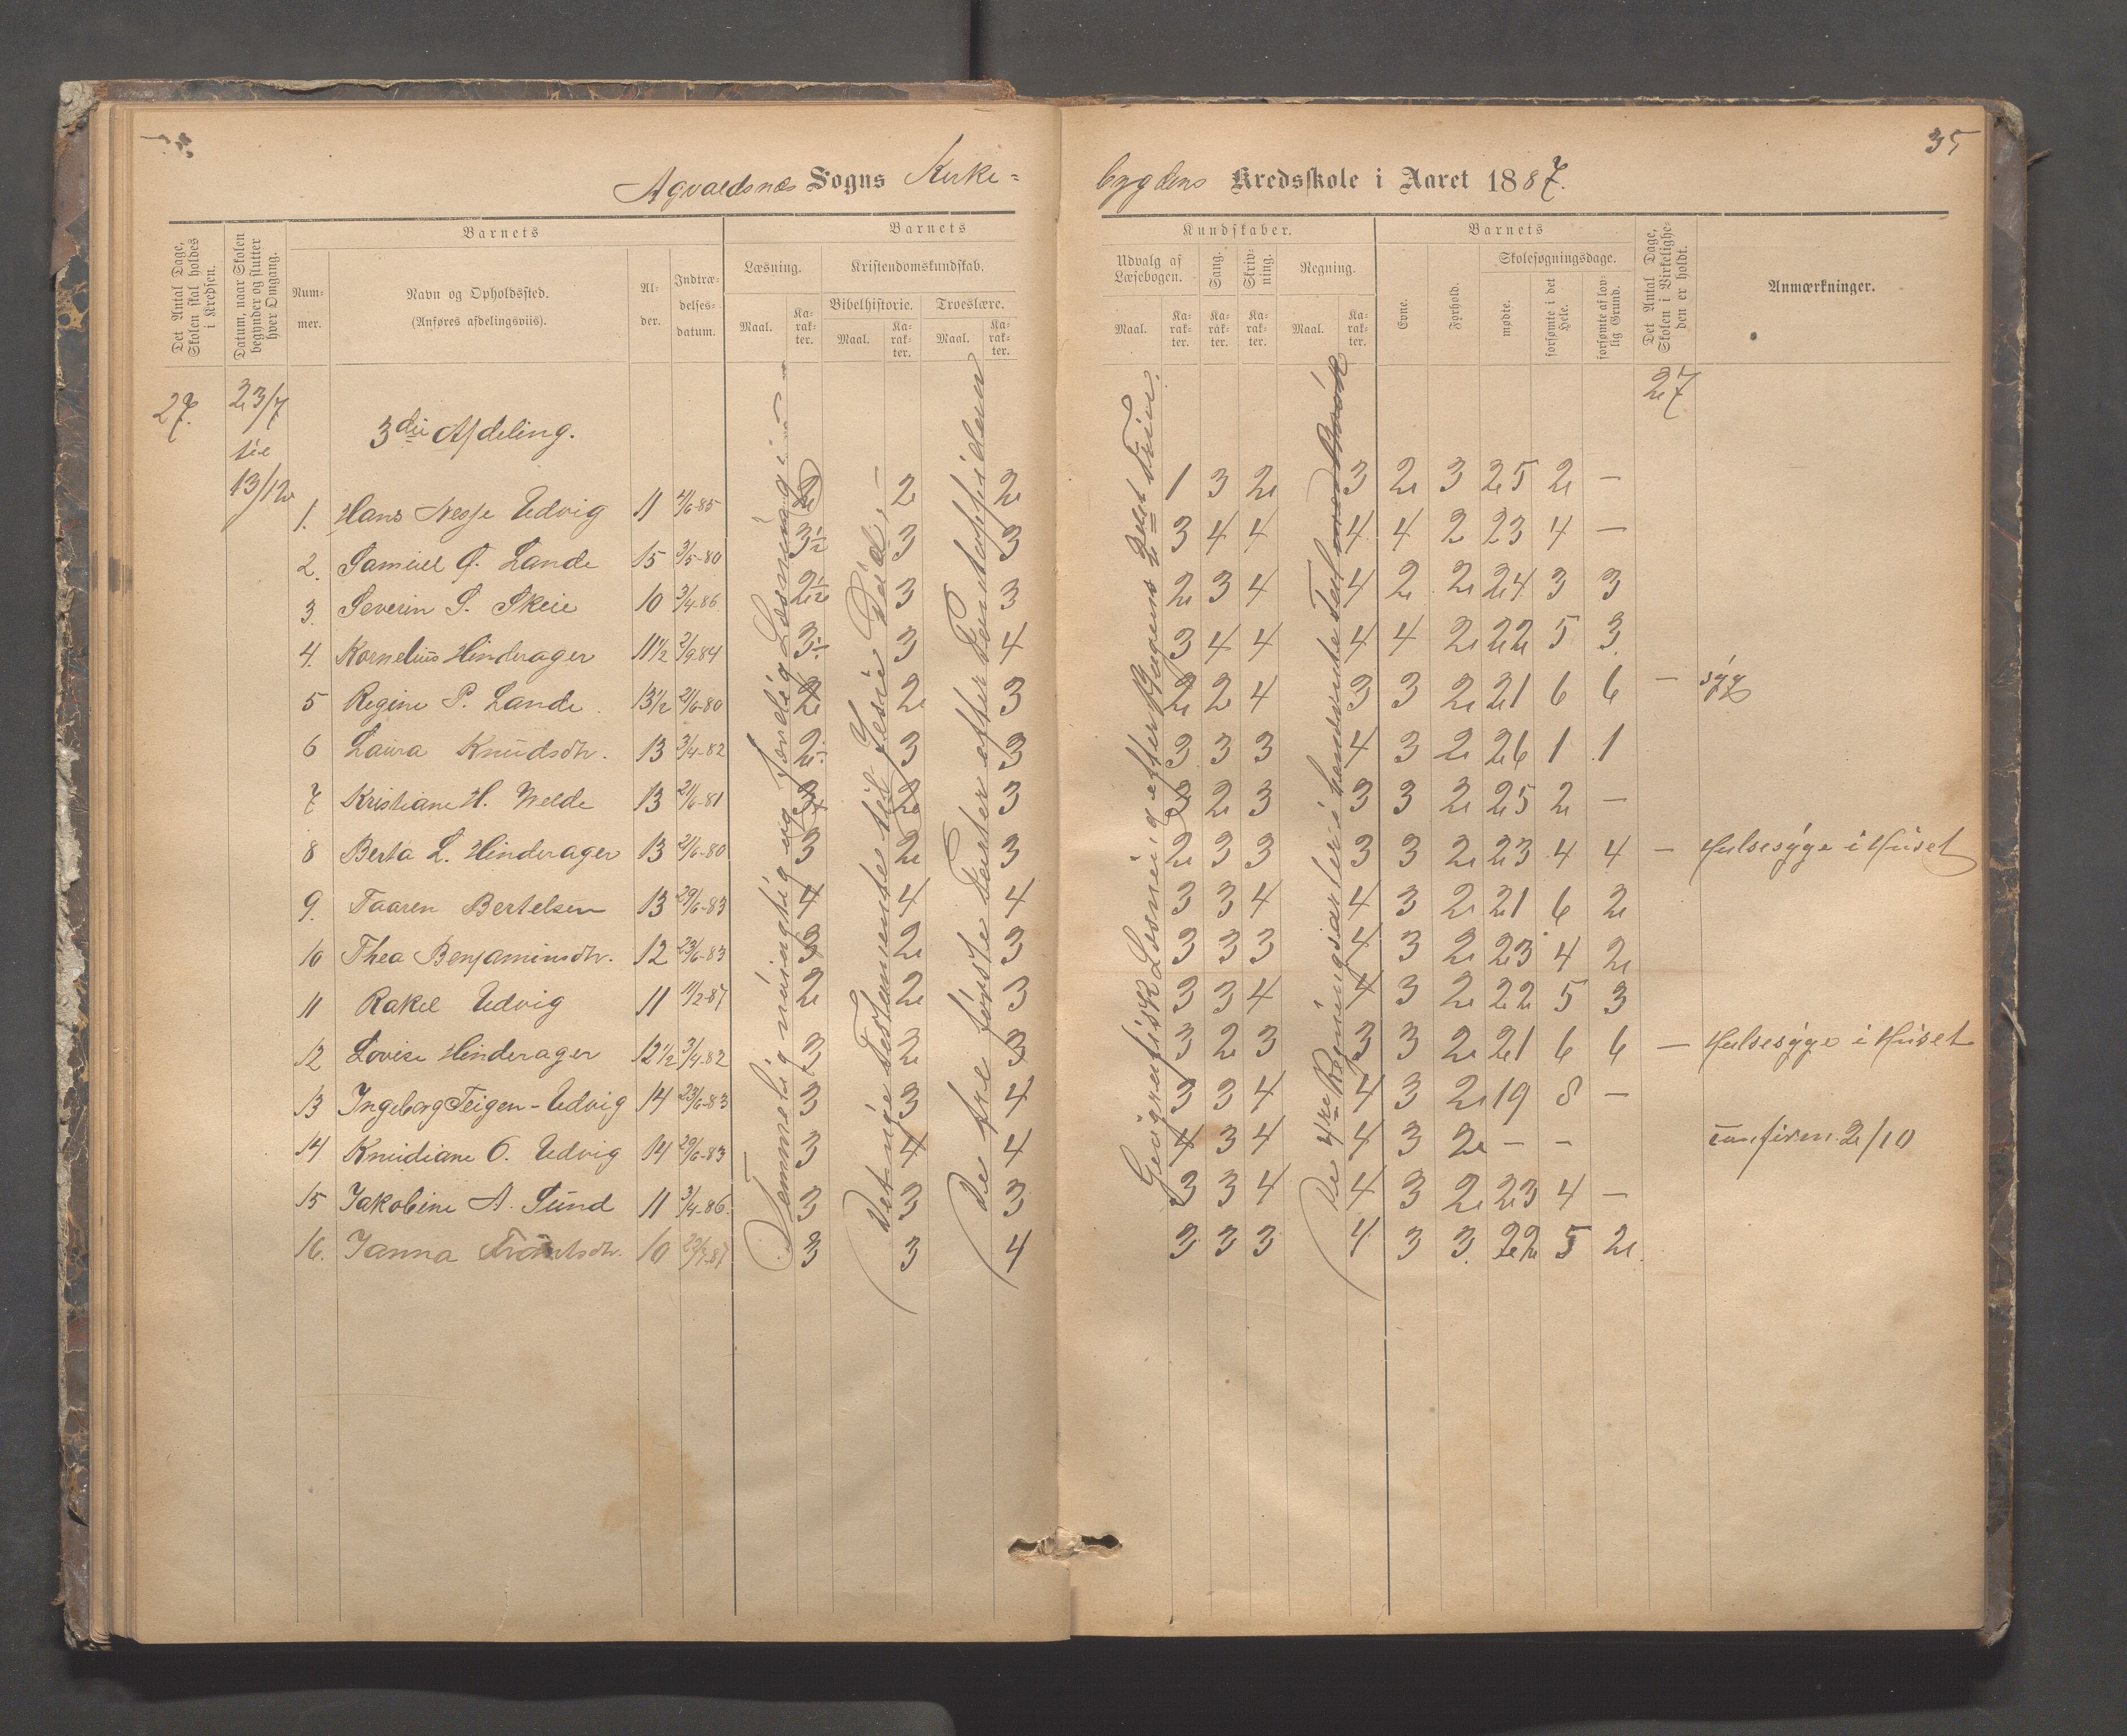 35
Agvaldsnæs Sogns Kirke=
bygdens Kredsskole i Aaret 1887.
Det Antal Dage, Skolen skal holdes i Kredsen.
Datum, naar Skolen begynder og slutter hver Omgang.
Barnets
Nummer.
Navn og Opholdssted.
(Anføres afdelingsviis).
Alder.
Indtrædelsesdatum.
Barnets
Læsning.
Maal.
Karakter.
Kristendomskundskab.
Bibelhistorie.
Maal.
Karakter.
Troeslære.
Maal.
Karakter.
Kundskaber.
Udvalg af Læsebogen.
Maal.
Karakter.
Sang.
Karakter.
Skrivning.
Karakter.
Regning.
Maal.
Karakter.
Barnets
Evne.
Forhold.
Skolesøgningsdage.
mødte.
forsømte i det Hele.
forsømte af lovlig Grund.
Det Antal Dage, Skolen i Virkeligheden er holdt.
Anmærkninger.
27. 23/7 til 13/12
3die Afdeling.
27
Temmelig nøiagtig og færdig Læsning i
Det nye Testamente til Jesu Død.
De tre første Parter efter Pontoppidan
Geografisk Læsning efter Bogens 2det Trin.
De 4re Regningsarter i hendvendte Tal med Brøk
1. Hans Nesse Udvig 11 4/6-85 2 2 2 1 3 2 3 2 3 25 2 —
2. Samuel G. Lande 15 3/5-80 3½ 3 3 3 4 4 4 4 2 23 4 —
3. Severin S. Skeie 10 3/4-86 2½ 3 3 2 3 4 4 2 2 24 3 3
4. Kornelius Hinderager 11½ 2/9 84 3 3 4 3 4 4 4 4 2 22 5 3
5 Regine P. Lande 13½ 21/6-80 2 2 3 2 2 4 3 3 2 21 6 6 — syg
6 Laura Knudsdtr. 13 3/4-82 2 3 3 3 3 3 4 3 2 26 1 1
7 Kristiane H. Welde 13 21/6-81 3 2 3 2 2 3 3 3 2 25 2 —
8 Berta L. Hinderager 13 21/6-80 3 2 3 2 3 3 3 3 2 23 4 4 — Halsesyge i Huset
9. Taaren Bertelsen 13 29/6-83 4 4 4 3 3 4 4 3 2 21 6 2
10 Thea Benjaminsdtr. 12 23/6-83 3 2 3 3 3 3 4 3 2 23 4 2
11 Rakel Udvig 11 11/2-87 2 2 3 3 3 4 4 3 2 22 5 3
12 Lovise Hinderager 12½ 3/4-82 3 2 3 3 2 3 3 3 2 21 6 6 — Halsesyge i Huset
13 Ingeborg Teigen-Udvig 14 23/6-83 3 3 4 3 3 4 4 3 2 19 8 —
14 Knudiane O. Udvig 14 29/6-83 3 4 4 4 3 4 4 3 2 — — confirm. 2/10
15 Jakobine A. Sund 11 3/4-86. 3 3 3 3 3 4 4 3 2 23 4 —
16. Janna 10 22/7-87 3 3 4 3 3 3 4 3 3 22 5 2